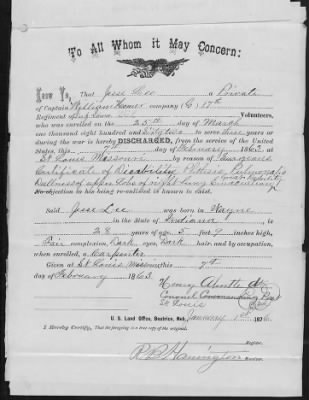 To All Whom it May Concern:
Know Ye, That Jesse Lee a Private
of Captain William Homer company (G) 17th
Regiment of Volunteers,
who was enrolled on the 25th day of March
one thousand eight hundred and Sixty two to serve three years or
during the war is hereby DISCHARGED, from the service of the United
States this 7th day of February 1863 at
St Louis Missouri by reason of Surgeons
Certificate of Disability Phthisis Pulmonalis
Dullness of upper lobe of right lung Emaciation
No objection to his being re-enlisted is known to exist.
Said Jesse Lee was born in Wayne
in the State of Indiana is
28 years of age, 5 feet 9 inches high,
Fair complexion, Dark eyes, Dark hair, and by occupation,
when enrolled, a Carpenter
Given at St Louis Missouri this 7th
day of February 1863.
Henry
Colonel Commanding Post
St Louis
U. S. Land Office, Beatrice, Neb., January 1st 1876
I Hereby Certify, That the foregoing is a true copy of the original.
Register.
Receiver.